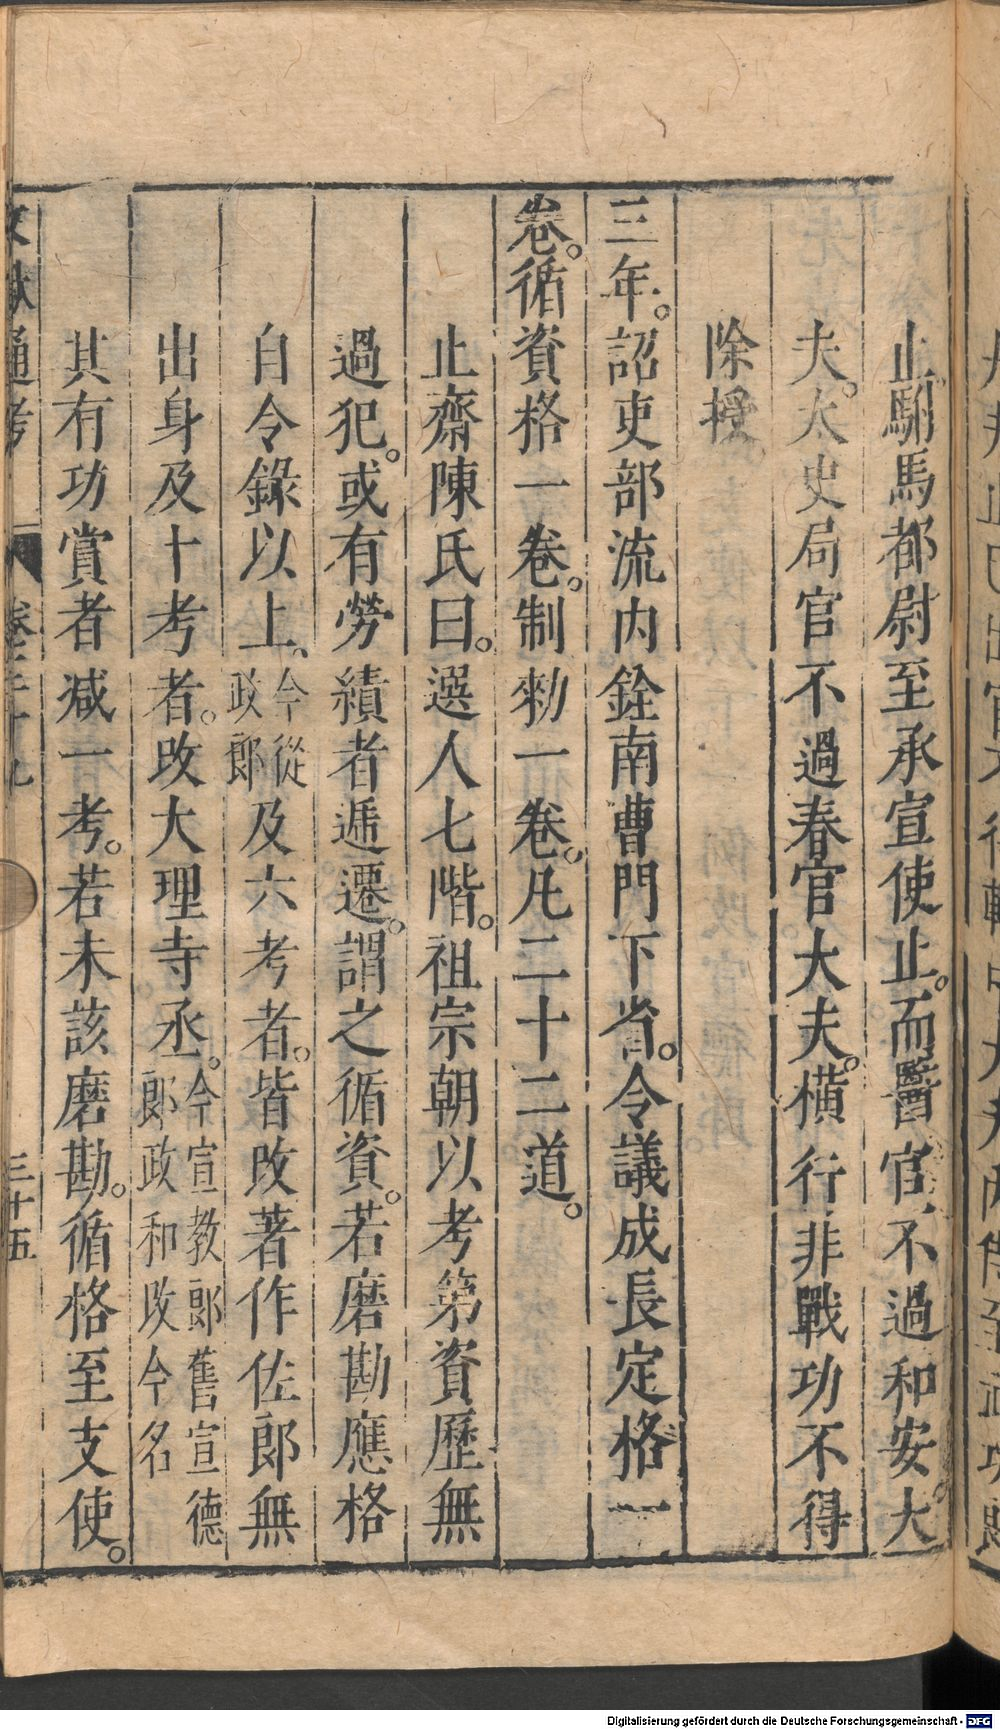 止駙馬都尉至承宣使止。而醫官不過和安大
夫。太史局官不過春官大夫。橫行非戰功不得
除授
三年。詔吏部流內銓南曹門下省。令議成長定格一
卷。循資格一卷。制勑一卷。凡二十二道。
止齋陳氏曰。選人七階。祖宗朝以考第資歷無
過犯。或有勞績者遞遷。謂之循資。若磨勘應格
自令錄以上、今從政郎及六考者。皆改著作佐郎無
出身及十考者。改大理寺丞。今宣教郎舊宣德郎政和改今名
其有功賞者減一考。若未該磨勘。循格至支使。
文獻通考 卷三十九 三十五
Digitalisierung gefördert durch die Deutsche Forschungsgemeinschaft - DFG